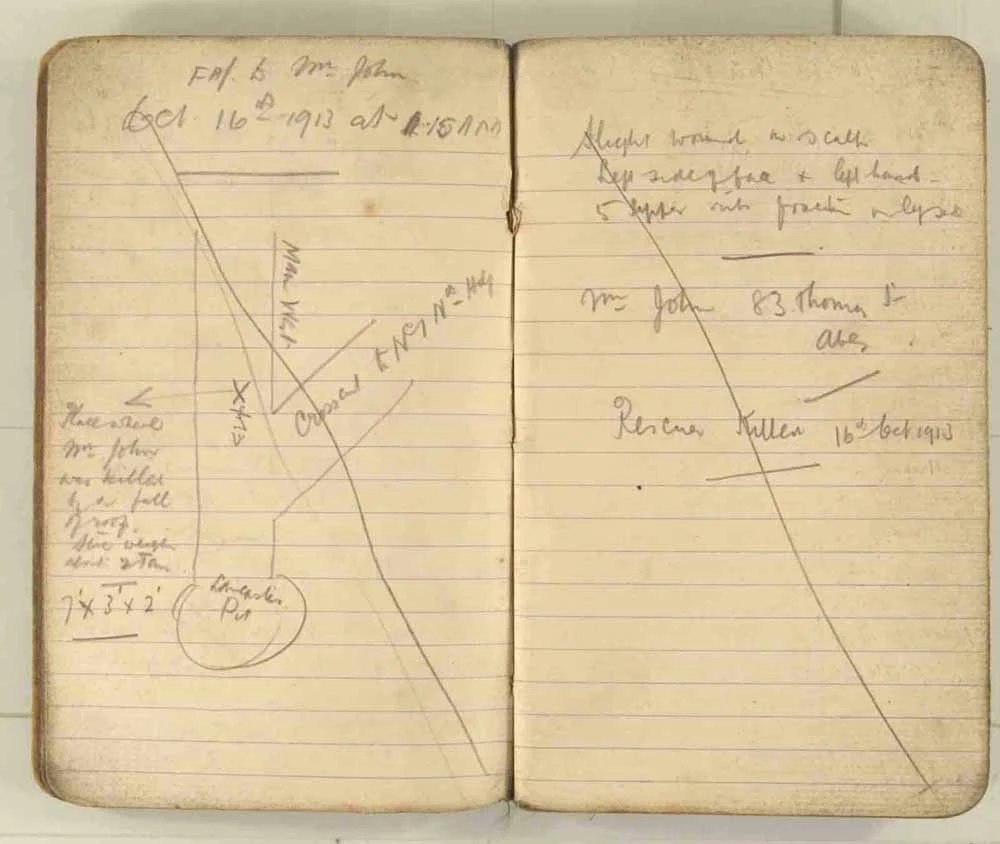 F.A/. to Wm John
Oct 16th 1913 at 1.15 AM
Main West.
Crosscut to No 1 Nth Hdg
X 4 yds
Place where
Wm John
was killed
by a fall
of roof.
Stone weigh
about 2 Tons
7' x 3' x 2'
Lancaster
Pit
Slight wound on scalp
Left side of face & left hand -
5 Upper ribs
Wm John 83 Thomas St
Aber
Rescuer Killed 16th Oct 1913